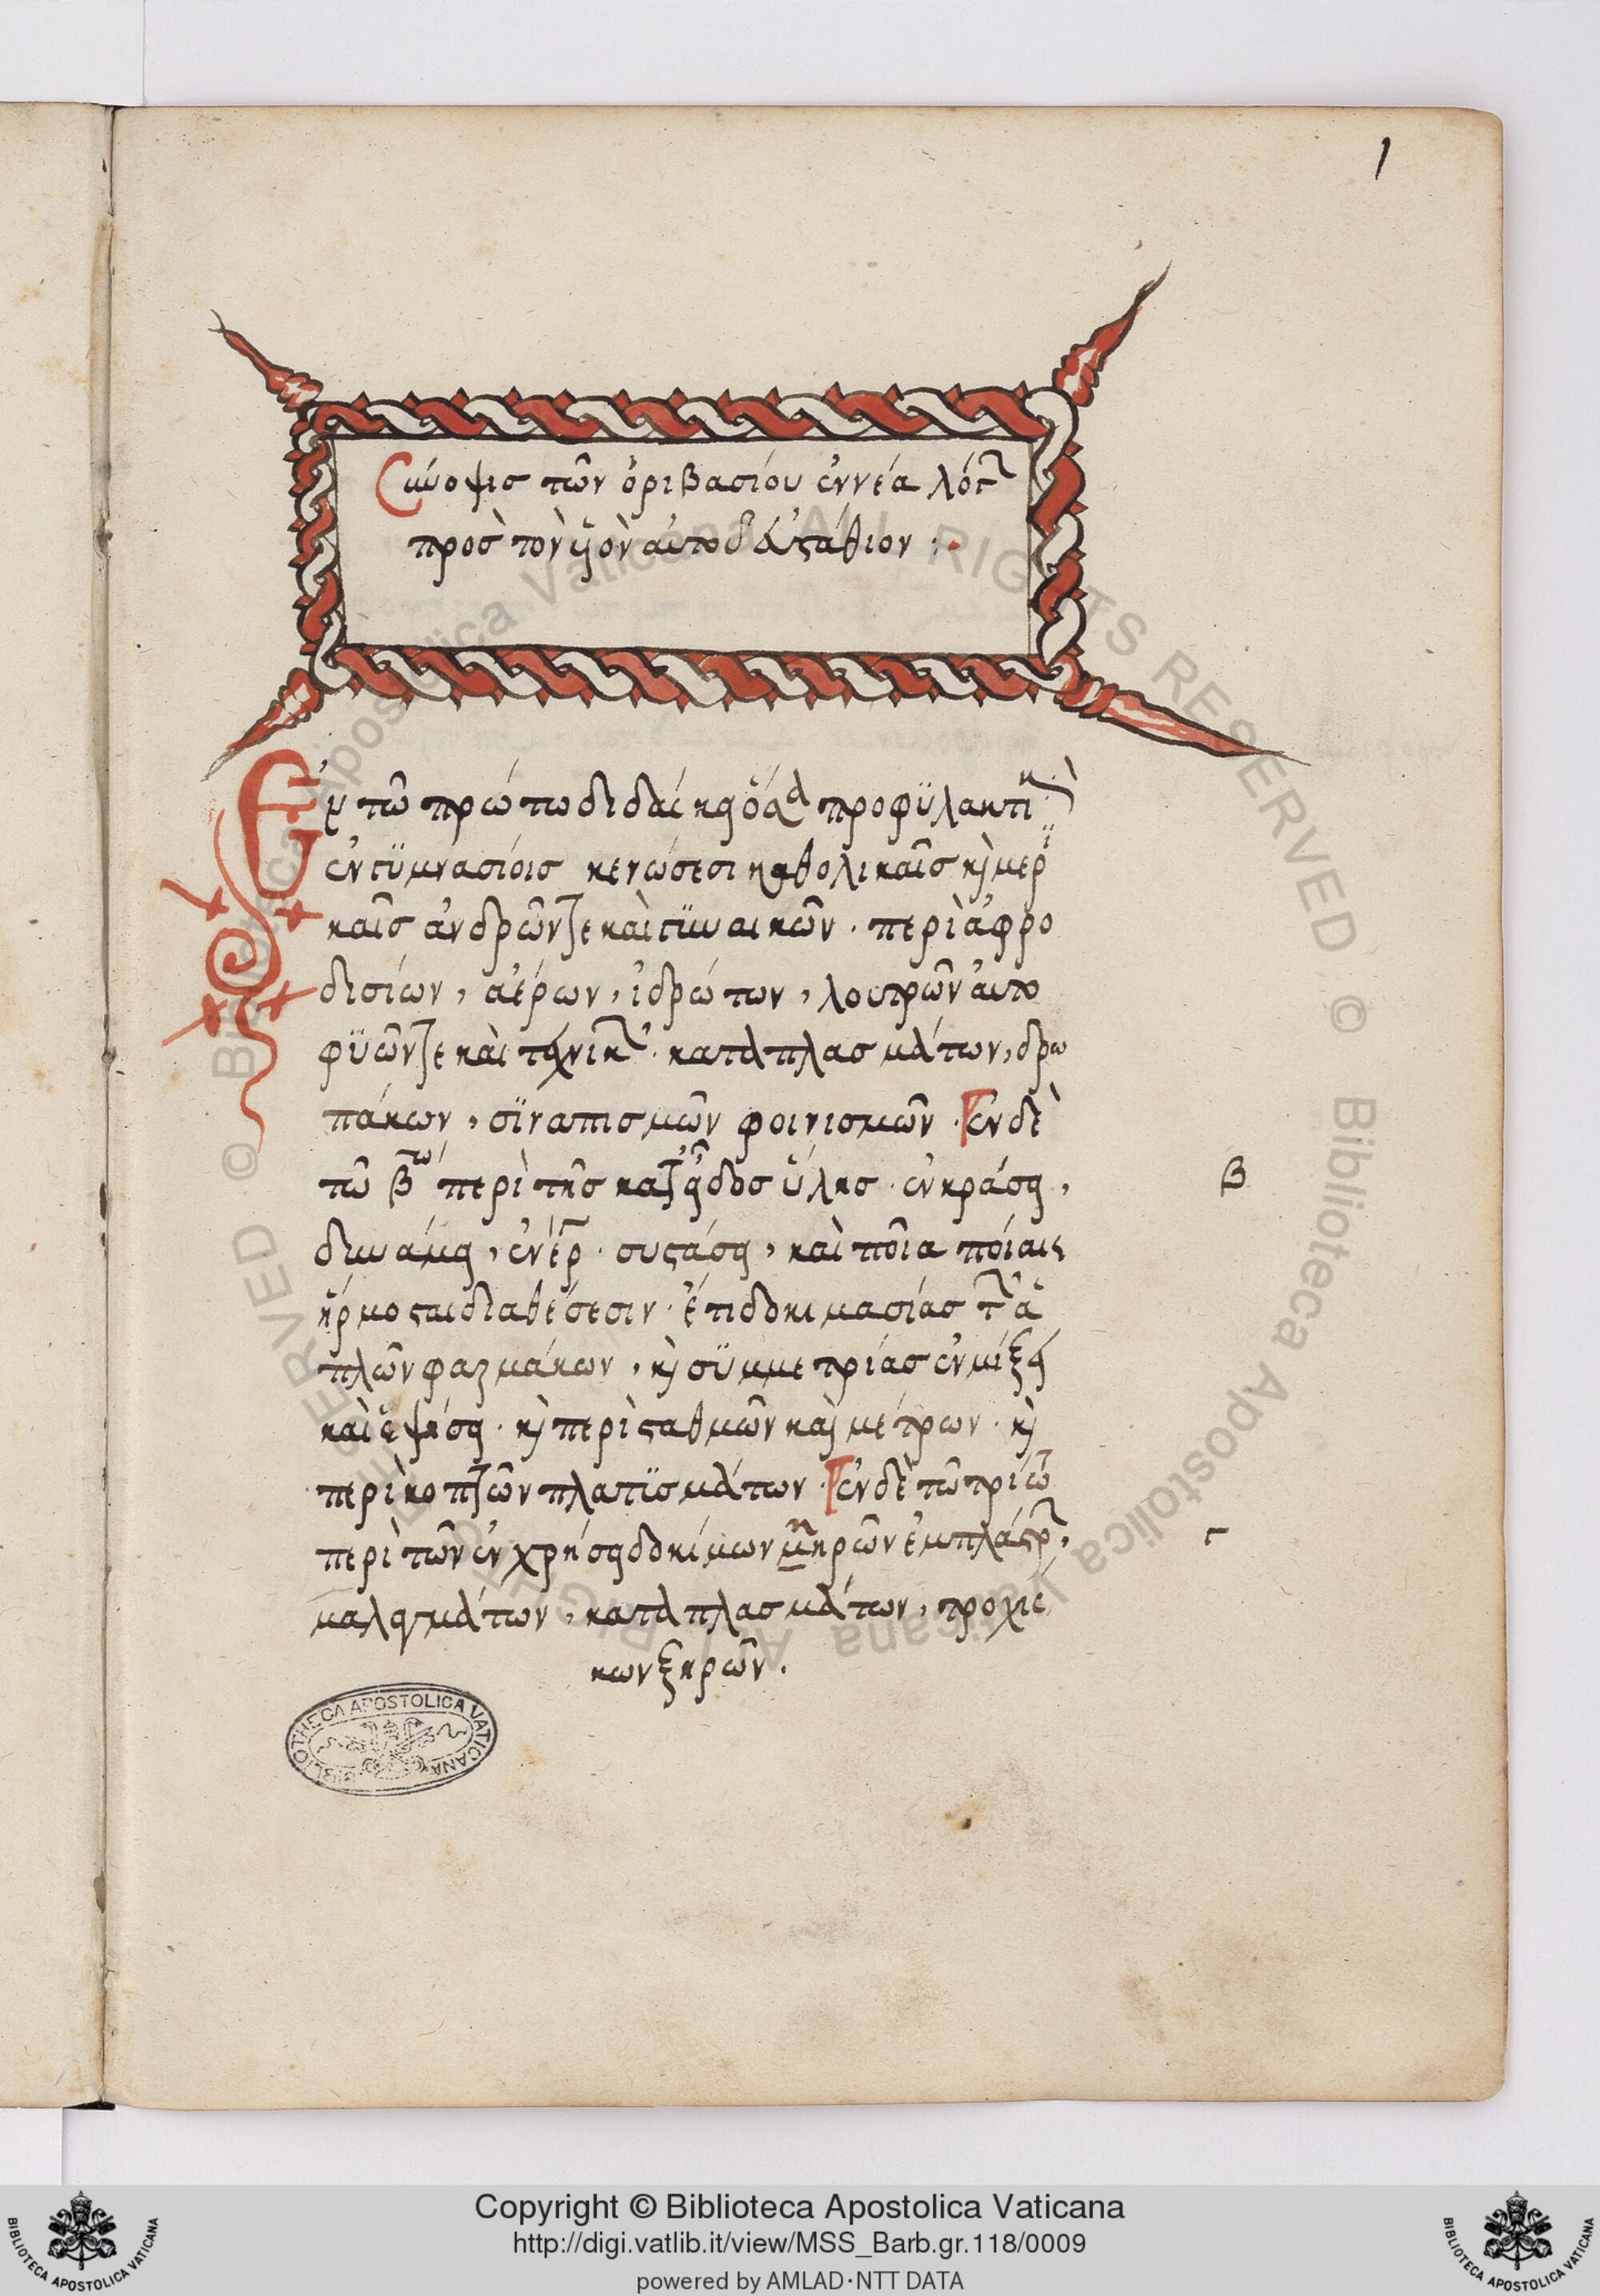 1
Σύνοψις τῶν ὀριβασίου ἐννέα λόγ
πρὸς τὸν ϋἱὸν αὐτοῦ εὐστάθιον :
Ἐν τῶ πρώτω διδάσκει ὁ ἀ προφϋλακτικ
ἐν γϋμνασίοις κενώσεσι καθολικαῖς κὶ μερϊ
καῖς ἀνδρῶν τε καὶ γϋναικῶν · περὶ ἀφρο
δισίων, ἀέρων, ἱδρώτων, λουτρῶν αὐτο
φϋῶν τε καὶ τεχνικ · καταπλασμάτων, δρω
πάκων, σϊναπισμῶν φοινισμῶν · ἐν δὲ
τῶ βω περὶ τῆς κατ εἶδος ὕλης · ἐν κράσει, β
δυνάμει, ἐνέρ · συστάσει, καὶ ποῖα ποίαις
ἥρμοσται διαθέσεσιν · ἔτι δοκιμασίας τ ἁ
πλῶν φαρμάκων, κὶ σϋμμετρίας ἐν μίξει
καὶ ἑψήσει · κὶ περὶ σταθμῶν καὶ μέτρων · κὶ
περὶ κοπτῶν πλατϋσμάτων · ἐν δὲ τῶ τρίτω
περὶ τῶν ἐν χρήσει δοκίμων κηρῶν ἐμπλάστρ, γ
μαλαγμάτων, καταπλασμάτων, τροχίσ
κων ξηρῶν.
BIBLIOTHECA APOSTOLICA VATICANA
© Biblioteca Apostolica Vaticana ALL RIGHTS RESERVED © Biblioteca Apostolica Vaticana ALL RIGHTS RESERVED
Copyright © Biblioteca Apostolica Vaticana
http://digi.vatlib.it/view/MSS_Barb.gr.118/0009
powered by AMLAD·NTT DATA
BIBLIOTECA APOSTOLICA VATICANA
BIBLIOTECA APOSTOLICA VATICANA